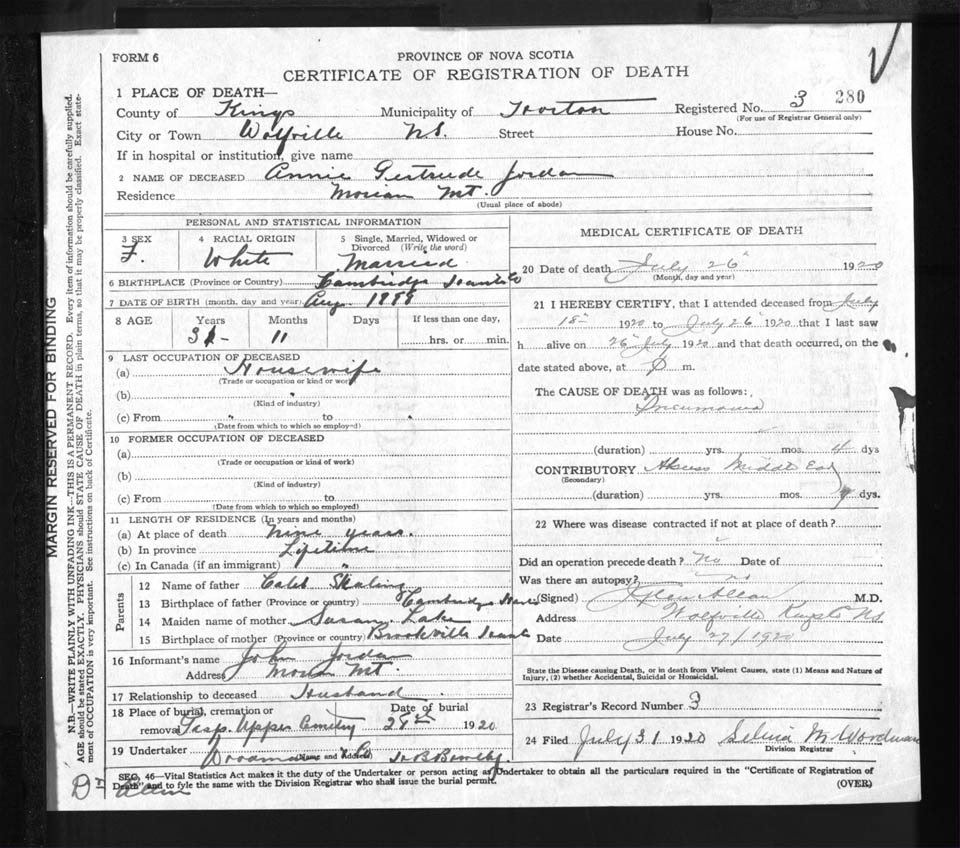 FORM 6
PROVINCE OF NOVA SCOTIA
CERTIFICATE OF REGISTRATION OF DEATH
1 PLACE OF DEATH—
County of Kings Municipality of Horton Registered No. 3 280
(For use of Registrar General only)
City or Town Wolfville N.S. Street House No.
If in hospital or institution, give name
2 NAME OF DECEASED Annie Gertrude Jordan
Residence Mt.
(Usual place of abode)
PERSONAL AND STATISTICAL INFORMATION
3 SEX 4 RACIAL ORIGIN 5 Single, Married, Widowed or Divorced (Write the word)
F. White Married
6 BIRTHPLACE (Province or Country) Cambridge Hants Co
7 DATE OF BIRTH (month, day and year) Aug. 1889
8 AGE Years Months Days If less than one day,
11 hrs. or min.
9 LAST OCCUPATION OF DECEASED
(a) Housewife
(Trade or occupation or kind or work)
(b) "
(Kind of industry)
(c) From " to "
(Date from which to which so employed)
10 FORMER OCCUPATION OF DECEASED
(a)
(Trade or occupation or kind of work)
(b)
(Kind of industry)
(c) From to
(Date from which to which so employed)
11 LENGTH OF RESIDENCE (In years and months)
(a) At place of death nine years.
(b) In province Lifetime
(c) In Canada (if an immigrant) "
Parents
12 Name of father Caleb Skaling
13 Birthplace of father (Province or country) Cambridge Hants
14 Maiden name of mother Susan Lake
15 Birthplace of mother (Province or country) Brookville Hants
16 Informant's name John Jordan
Address Mt.
17 Relationship to deceased Husband
18 Place of burial, cremation or removal Gasp. Upper Cemetery Date of burial 28th 1920
19 Undertaker (Name and Address)
MEDICAL CERTIFICATE OF DEATH
20 Date of death July 26" 1920
(Month, day and year)
21 I HEREBY CERTIFY, that I attended deceased from July
18th 1920 to July 26" 1920 that I last saw
h alive on 26" July 1920 and that death occurred, on the
date stated above, at 6 m.
The CAUSE OF DEATH was as follows:
Pneumonia
(duration) yrs. mos. 4 dys
CONTRIBUTORY Abcess Middle Ear
(Secondary)
(duration) yrs. mos. 9 dys.
22 Where was disease contracted if not at place of death?
Did an operation precede death? No Date of
Was there an autopsy? no
(Signed) M.D.
Address Wolfville Kings Co NS
Date July 27/1920
State the Disease causing Death, or in death from Violent Causes, state (1) Means and Nature of
Injury, (2) whether Accidental, Suicidal or Homicidal.
23 Registrar's Record Number 3
24 Filed July 31 1920 Selina M Woodman
Division Registrar
SEC. 46—Vital Statistics Act makes it the duty of the Undertaker or person acting as Undertaker to obtain all the particulars required in the "Certificate of Registration of
Death" and to fyle the same with the Division Registrar who shall issue the burial permit.
(OVER)
MARGIN RESERVED FOR BINDING
N.B.—WRITE PLAINLY WITH UNFADING INK—THIS IS A PERMANENT RECORD. Every item of information should be carefully supplied.
AGE should be stated EXACTLY. PHYSICIANS should STATE CAUSE OF DEATH in plain terms, so that it may be properly classified. Exact state-
ment of OCCUPATION is very important. See instructions on back of Certificate.